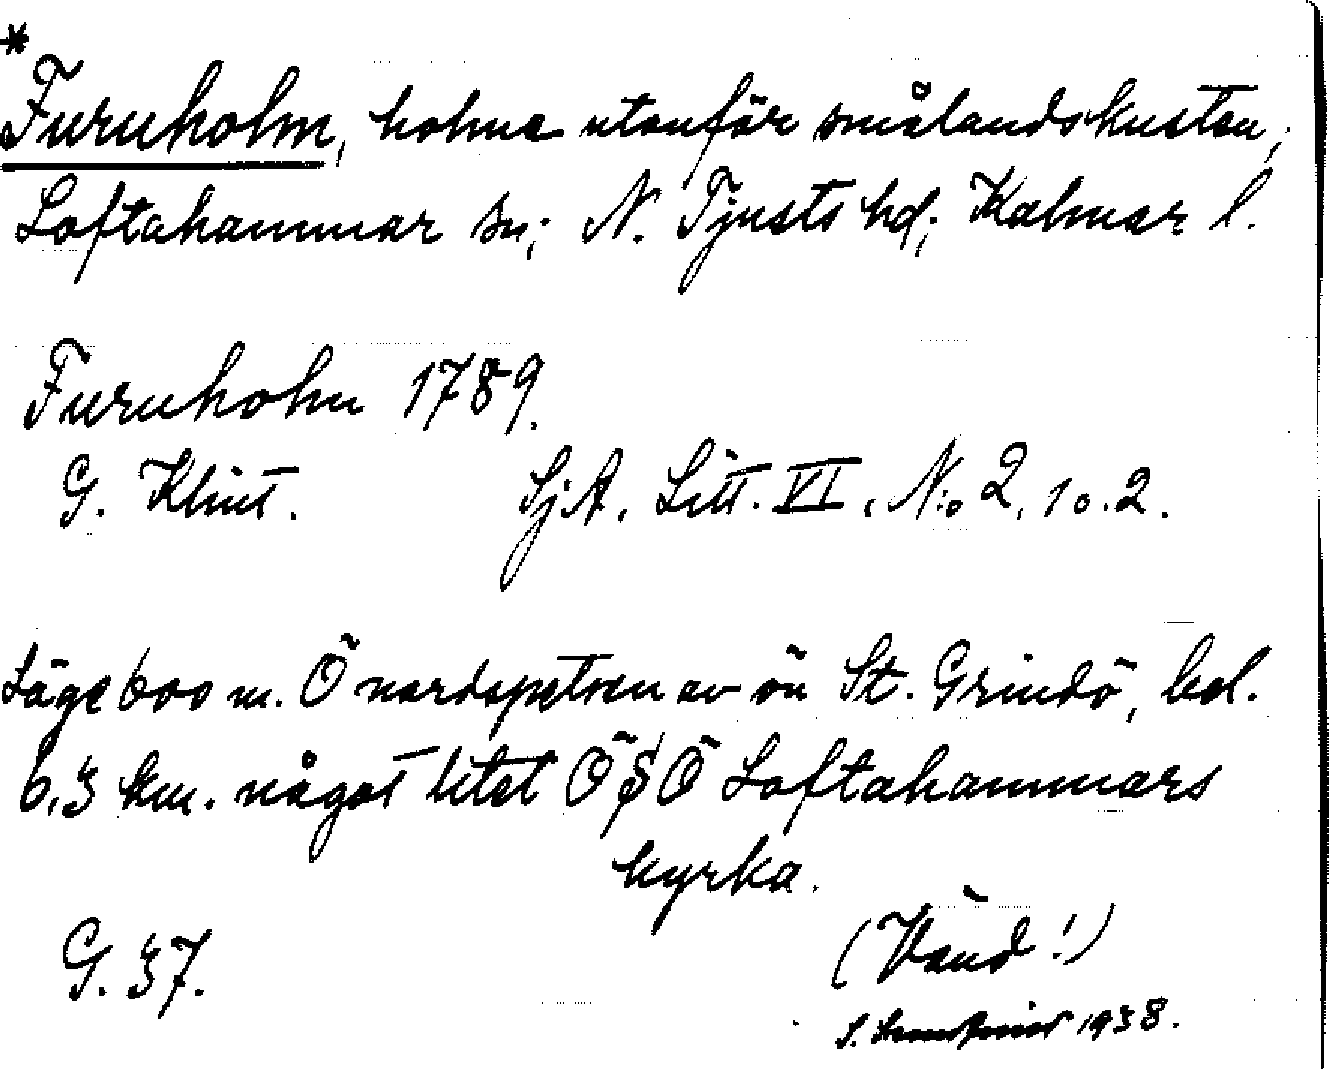 *
Furuholm, holme utanför smålandskusten,
Loftahammar sn; N. Tjusts hd; Kalmar l.
Furuholm 1789.
G. Klint. SjA. Litt. VI. N:o 2, 1o.2.
Läge 600 m. Ö nordspetsen av ön St. Grindö, bel.
6,3 km. något litet Ö§Ö Loftahammars
kyrka.
G. 37.
(Vänd!)
S. 1938.